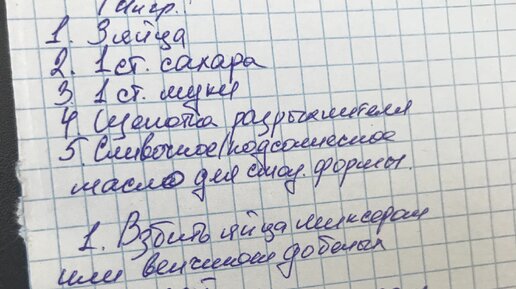 Ингр.
1. 3 яйца
2. 1 ст. сахара
3 1 ст. муки
4 Щепотка разрыхлителя
5. Сливочное/подсолнечное
масло для смаз. формы.
1. Взбить яйца миксером
или венчиком добавив